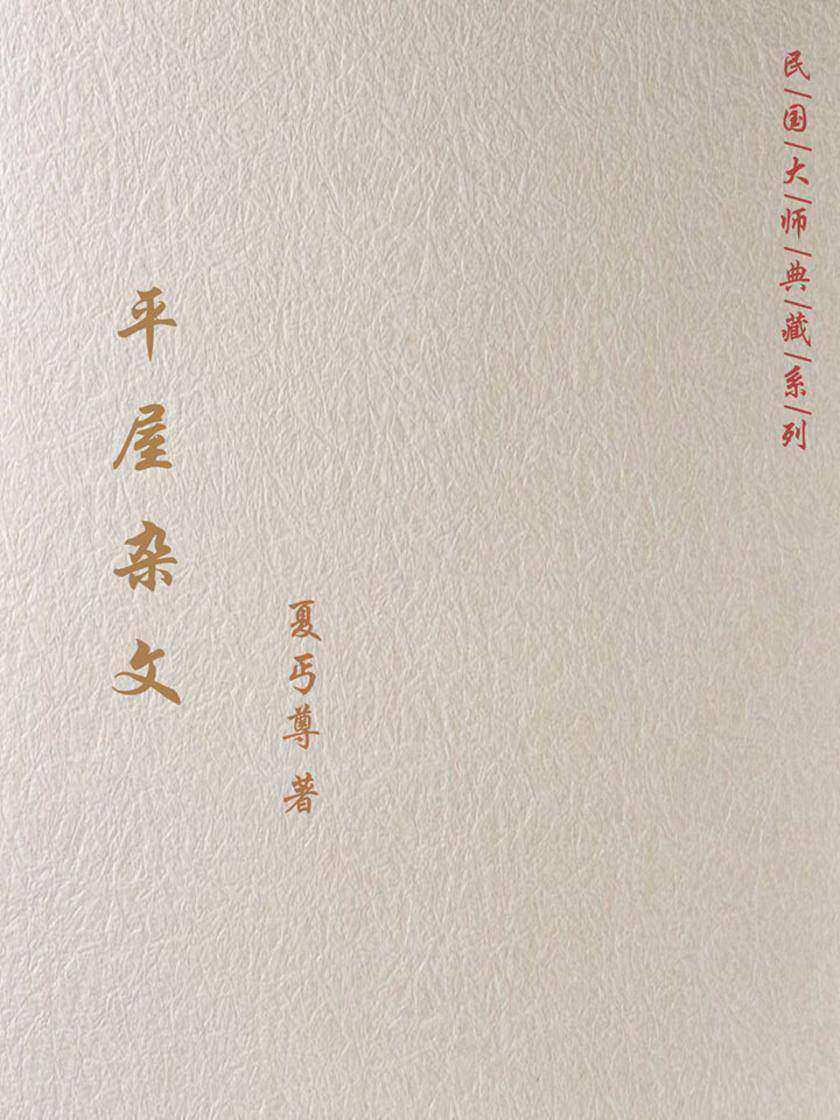 民|国|大|师|典|藏|系|列
平屋杂文
夏丏尊 著